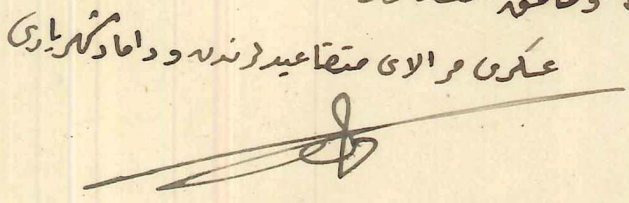 عسكرى مير آلاى متقاعدلرندن و داماد شهريارى